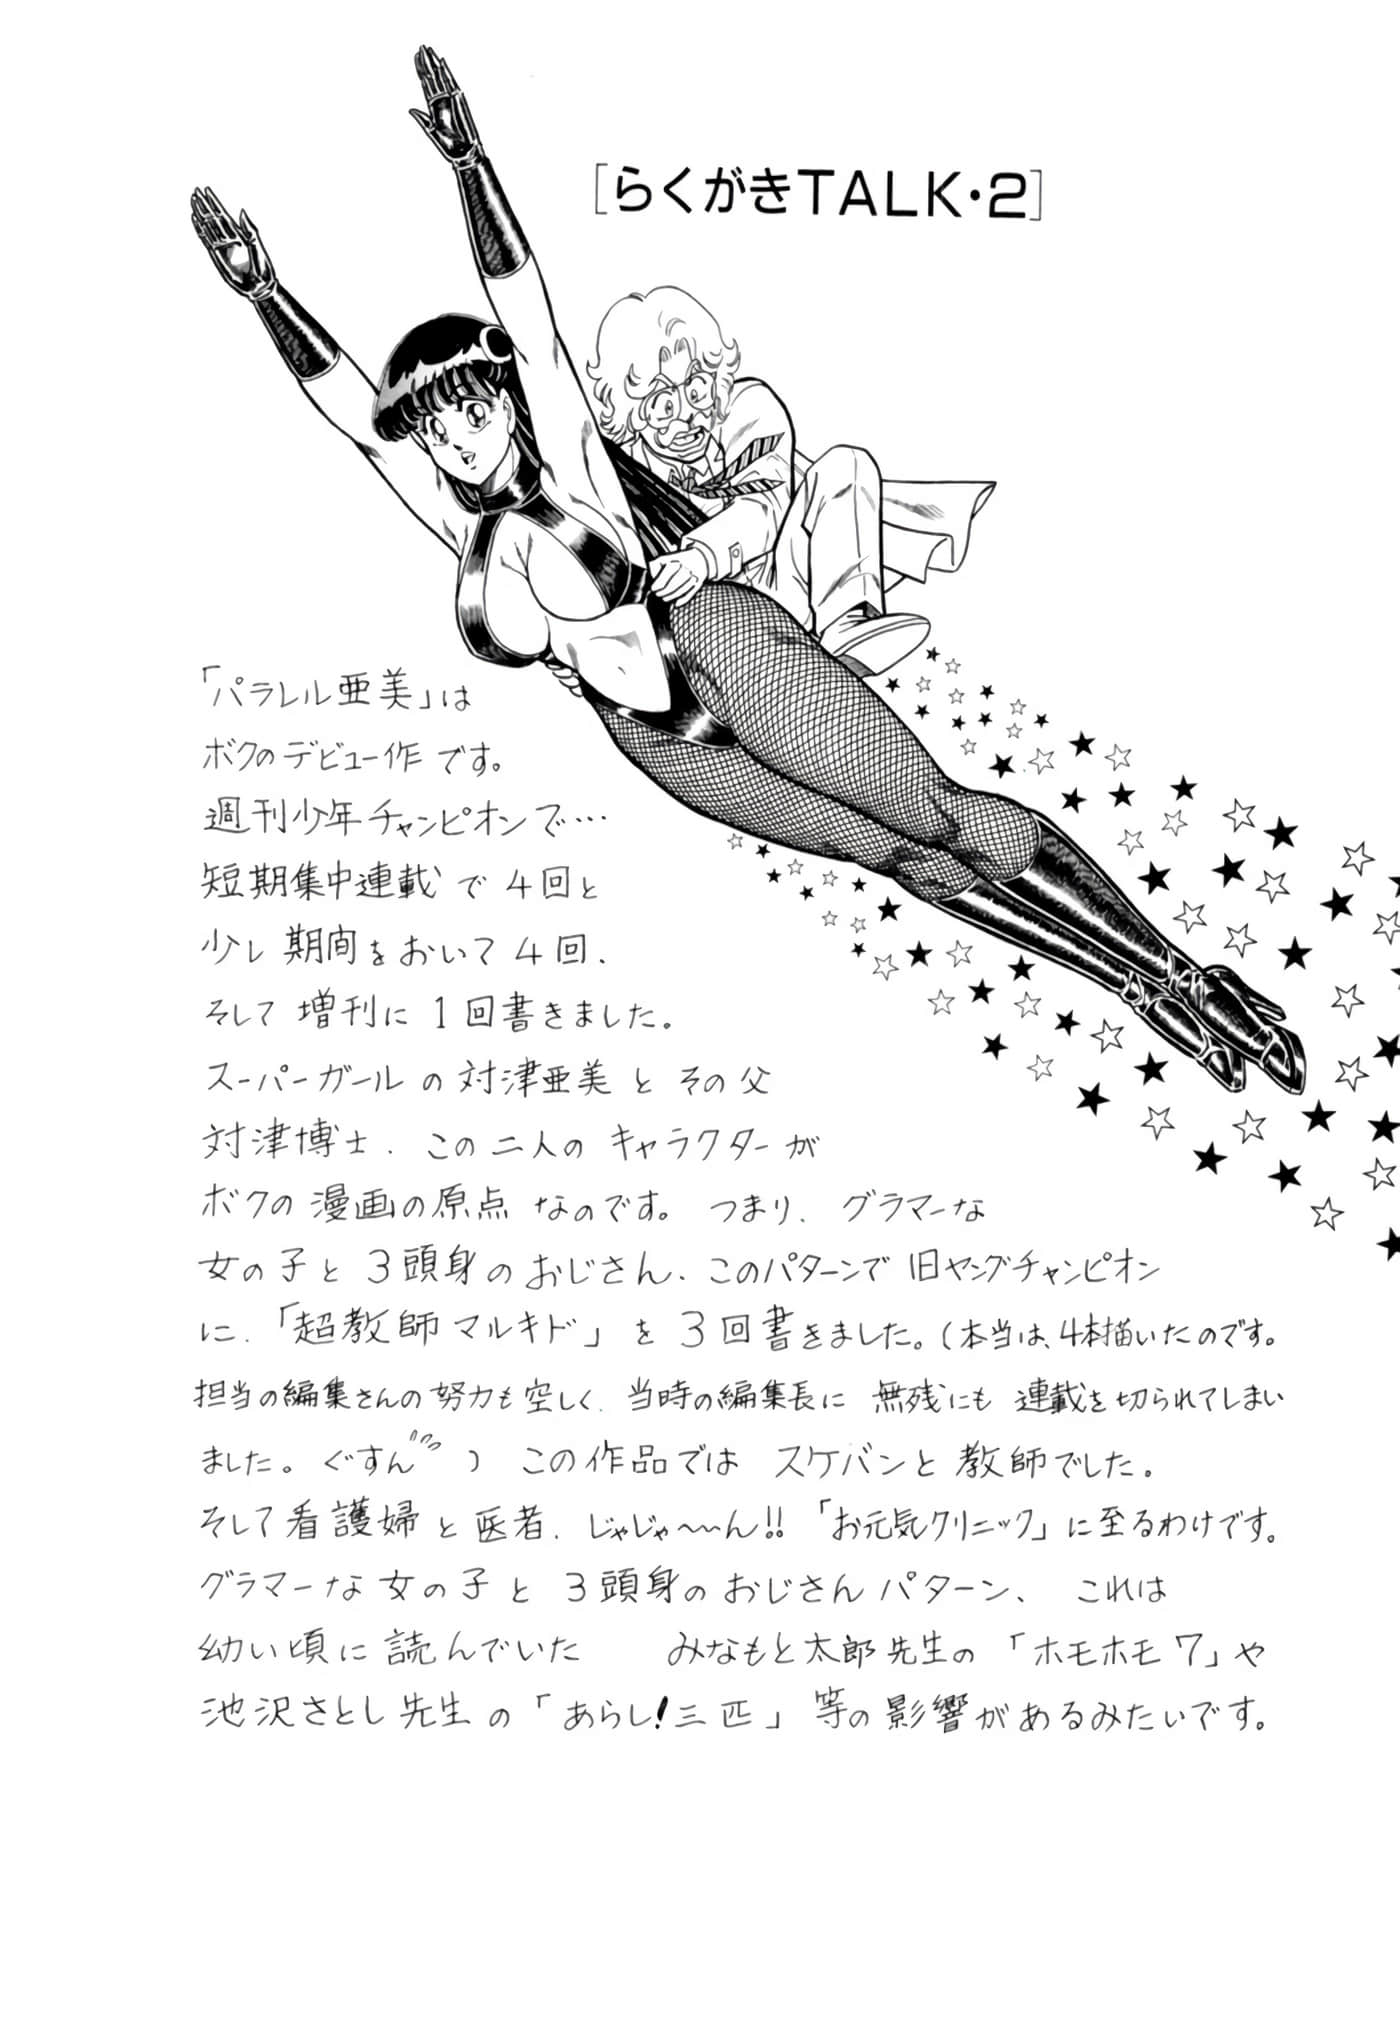 [らくがきTALK・2]
「パラレル亜美」は
ボクのデビュー作です。
週刊少年チャンピオンで…
短期集中連載で4回と
少し期間をおいて4回、
そして増刊に1回書きました。
スーパーガールの対津亜美とその父
対津博士、この二人のキャラクターが
ボクの漫画の原点なのです。つまり、グラマーな
女の子と3頭身のおじさん、このパターンで旧ヤングチャンピオン
に、「超教師マルキド」を3回書きました。(本当は、4本描いたのです。
担当の編集さんの努力も空しく、当時の編集長に無残にも連載を切られてしまい
ました。ぐすん)この作品ではスケバンと教師でした。
そして看護婦と医者、じゃじゃ〜ん!!「お元気クリニック」に至るわけです。
グラマーな女の子と3頭身のおじさんパターン、これは
幼い頃に読んでいた みなもと太郎先生の「ホモホモ7」や
池沢さとし先生の「あらし!三匹」等の影響があるみたいです。